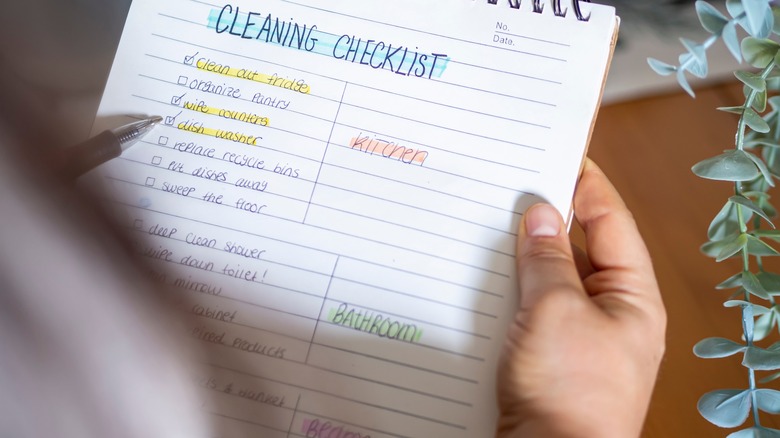 No.
Date.
CLEANING CHECKLIST
clean out fridge
organize pantry
wipe counters
dish washer
replace recycle bins
put dishes away
sweep the floor
Kitchen
deep clean shower
wipe down toilet!
mirror
cabinet
products
BATHROOM
& blanket